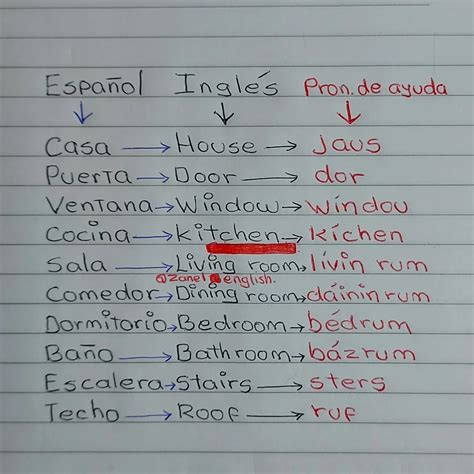 Español Inglés Pron. de ayuda
Casa → House → jaus
Puerta → Door → dor
Ventana → Window → wíndou
Cocina → kitchen → kíchen
Sala → Living room → lívin rum
@zanel english.
Comedor → Dining room → dáinin rum
Dormitorio → Bedroom → bédrum
Baño → Bathroom → bázrum
Escalera → Stairs → sters
Techo → Roof → ruf